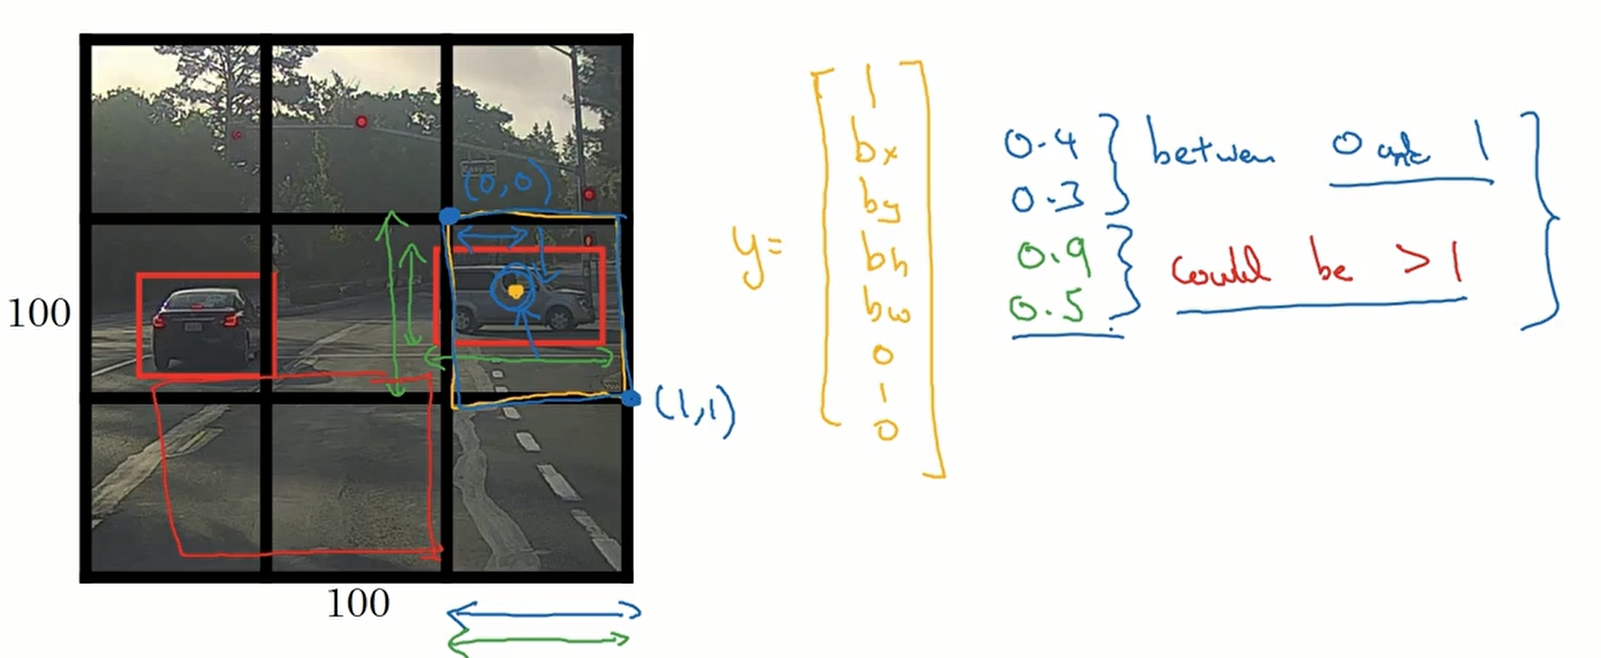 (0,0)
(1,1)
100
100
y=
1
bx
by
bh
bw
0
1
0
0.4
0.3
between 0 and 1
0.9
0.5
could be >1